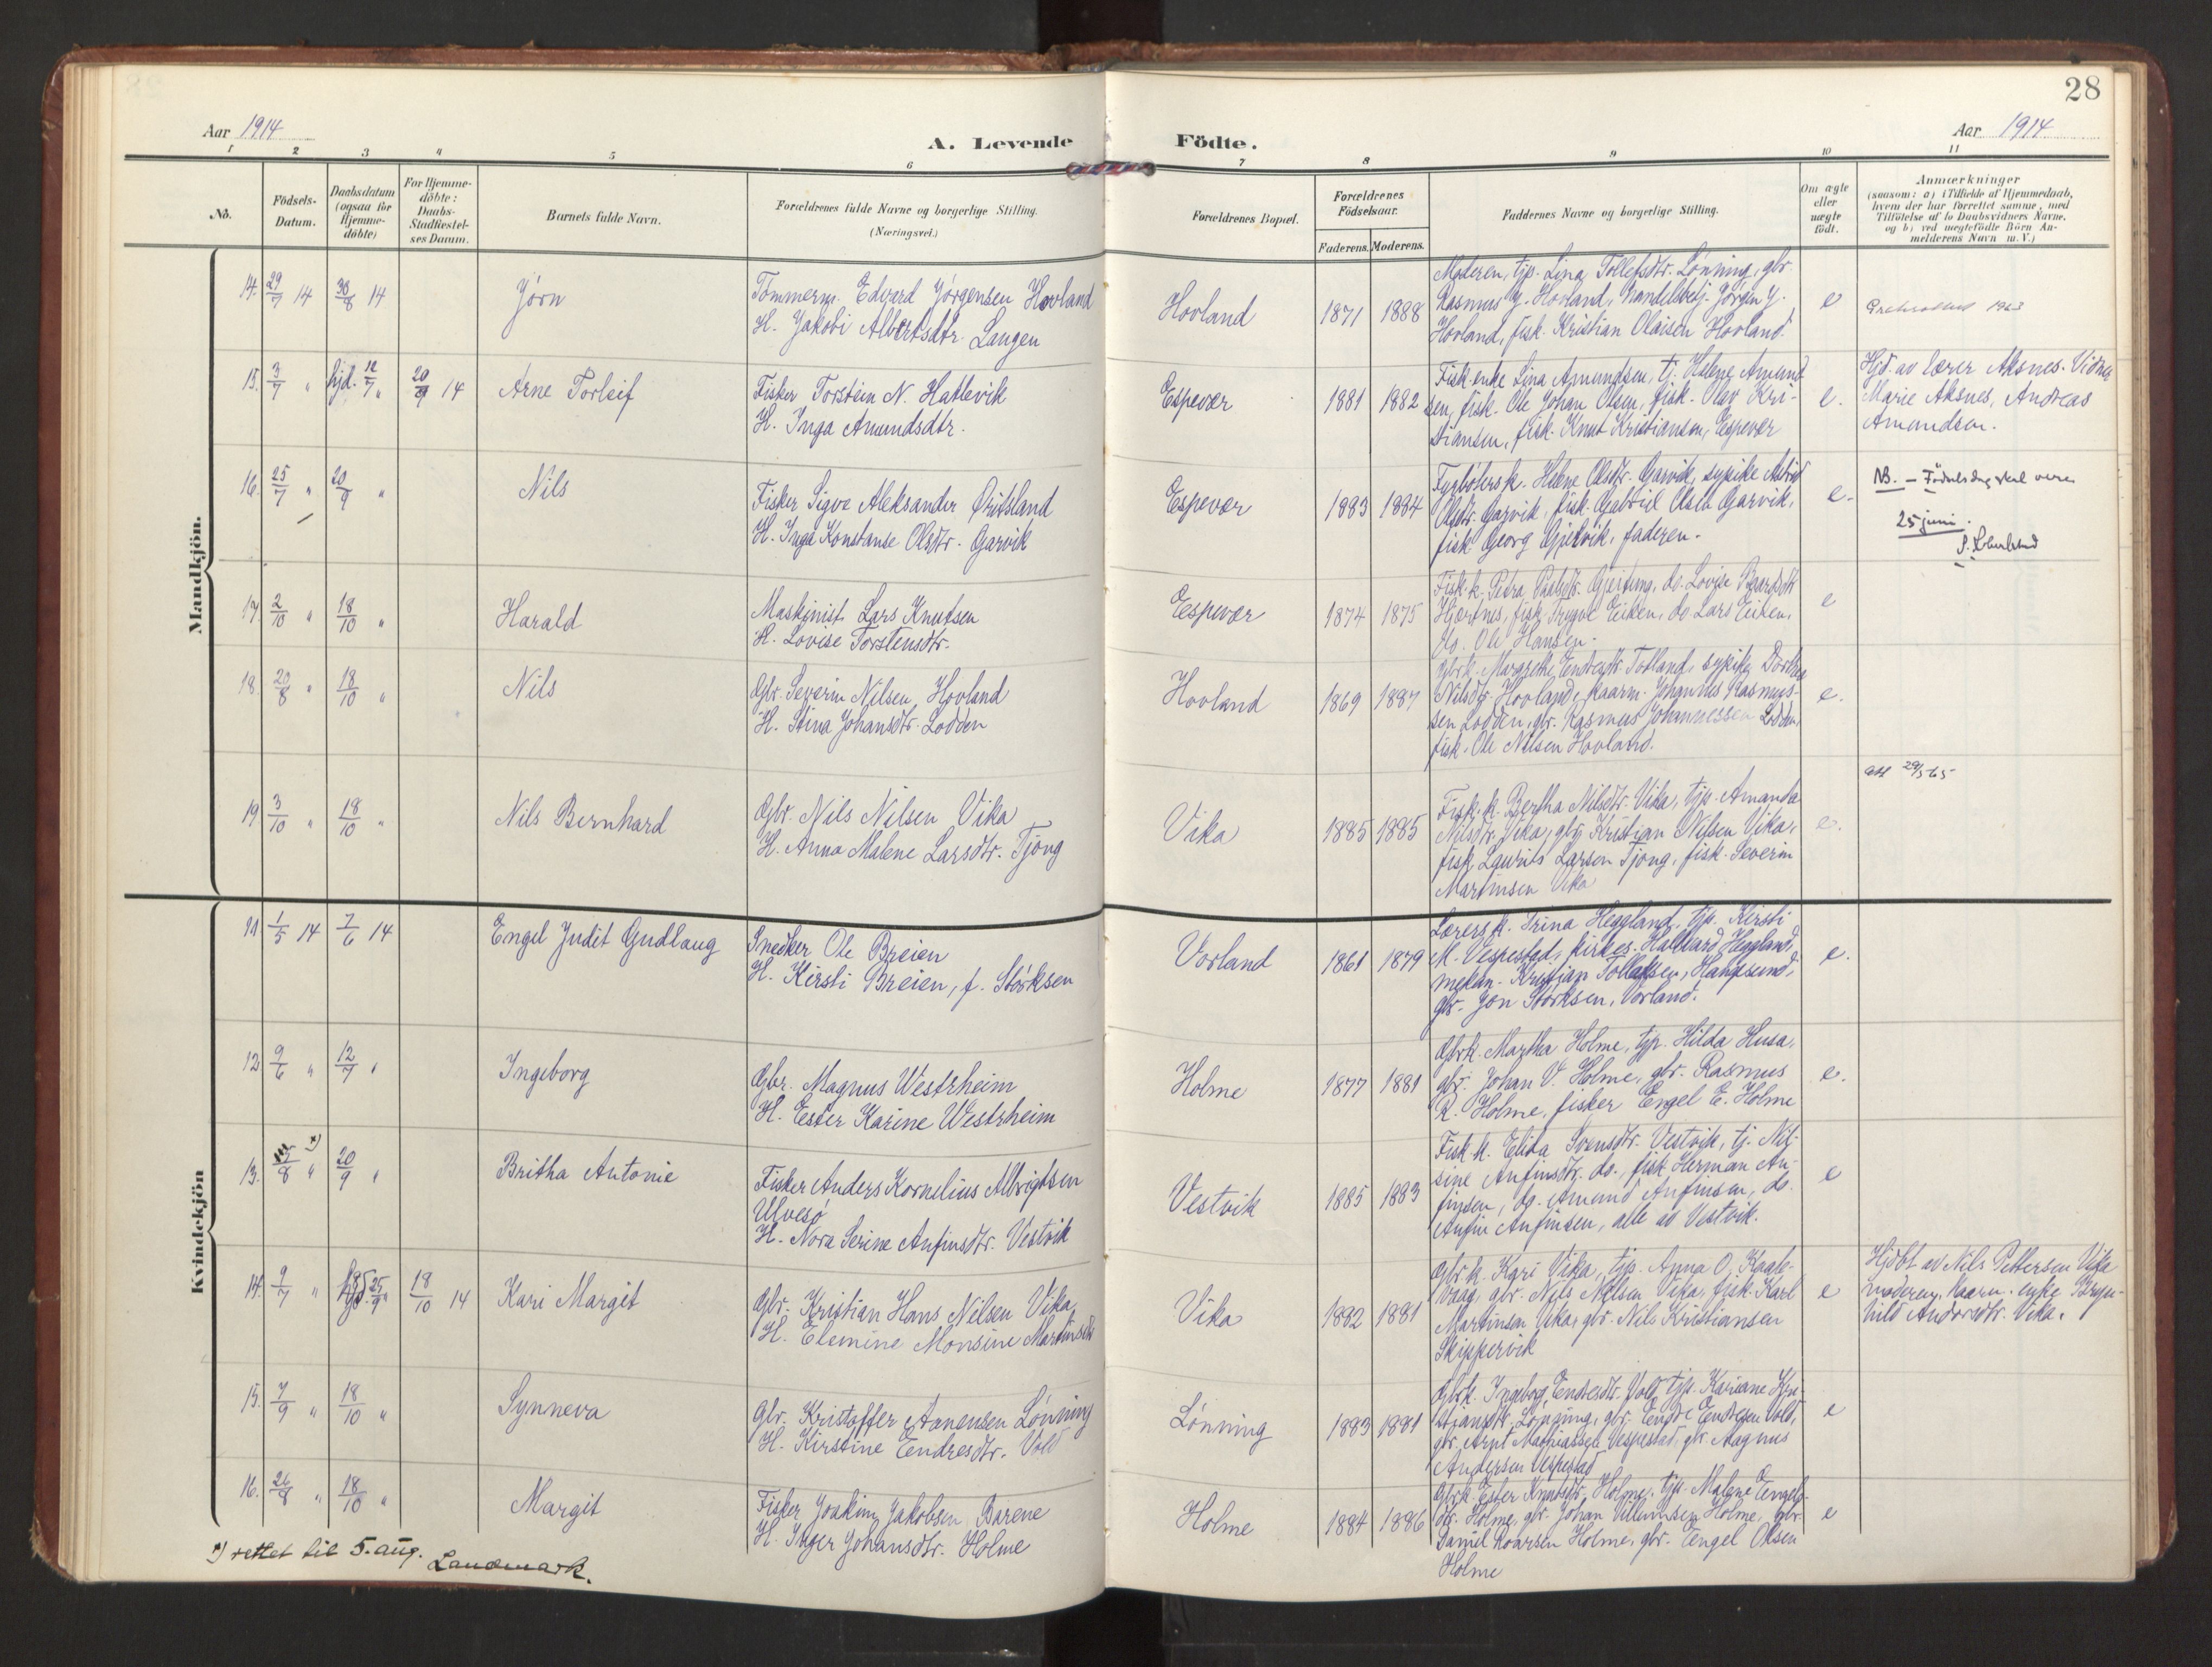 28
Aar 1914
A. Levende Födte.
Aar 1914
1 2 3 4 5 6 7 8 9 10 11
No.
Födsels-
Datum.
Daabsdatum
(ogsaa for
Hjemme-
döbte)
For Hjemme-
döbte:
Daabs-
Stadfæstel-
ses Datum.
Barnets fulde Navn.
Forældrenes fulde Navne og borgerlige Stilling.
(Næringsvei.)
Forældrenes Bopæl.
Forældrenes
Födselsaar.
Faderens. Moderens.
Faddernes Navne og borgerlige Stilling.
Om ægte
eller
uægte
födt.
Anmærkninger
(saasom: a) i Tilfælde af Hjemmedaab,
hvem der har forrettet samme, med
Tilföielse af to Daabsvidners Navne,
og b) ved uægtefödte Börn An-
melderens Navn m. V.)
Mandkjön.
14. 29/7 14 30/8 14 Jørn
Tømmerm. Edvard Jørgensen Hovland
H. Jakobi Albertsdtr. Langen
Hovland 1871 1888
Moderen, tjp. Lina Tollefsdtr. Lønning, gbr.
Rasmus J. Hovland, Handelsbetj. Jørgen J.
Hovland, fisk. Kristian Olaisen Hovland.
e
1963
15. 3/7 " hjd. 12/7 " 20/9 14 Arne Torleif
Fisker Torstein N. Hatlevik
H. Inga Amundsdtr.
Espevær 1881 1882
Fisk. enke Lina Amundsen, tj. Helene Amund-
sen, fisk. Ole Johan Olsen, fisk. Olav Kri-
stiansen, fisk. Knut Kristiansen, Espevær
e.
Hjd. av lærer Aksnes. Vidner
Marie Aksnes, Andreas
Amundsen.
16. 25/7 " 20/9 " Nils
Fisker Sigve Aleksander Øritsland
H. Inga Konstanse Olsdtr. Garvik
Espevær 1883 1884
Fyrbøtersk. Helene Olsdtr. Garvik, sypike Astrid
Olsdtr. Garvik, fisk. Gabriel Olsen Garvik,
fisk. Georg Gjelvik, faderen.
e.
NB. - Fødselsdag skal være
25 juni.
17. 2/10 " 18/10 " Harald
Maskinist Lars Knutsen
H. Lovise Torstensdtr.
Espevær 1874 1875
Fisk. k. Petra Paulsdtr. Gjerting, do. Lovise Baardsdtr
Hjertnes, fisk. Trygve Eiken, do Lars Eiken,
do. Ole Hansen.
e
18. 20/8 " 18/10 " Nils
Gbr. Severin Nilsen Hovland
H. Stina Johansdtr. Lodden
Hovland 1869 1887
Gbrk. Margrethe Endresdtr. Totland, sypike Dorthea
Nilsdtr. Hovland, kaarm. Johannes Rasmus-
sen Lodden, gbr. Rasmus Johannessen Lodden,
fisk. Ole Nilsen Hovland.
e.
19. 3/10 " 18/10 " Nils Bernhard
Gbr. Nils Nilsen Vika
H. Anna Malene Larsdtr. Tjong
Vika 1885 1885
Fisk. k. Bertha Nilsdtr. Vika, tjp. Amanda
Nilsdtr. Vika, gbr. Kristian Nilsen Vika,
fisk. Laurits Larsen Tjong, fisk. Severin
Martinsen Vika
e.
29/5 65
Kvindekjön
11. 1/5 14 7/6 14 Engel Judit Gudlaug
Snedker Ole Breien
H. Kirsti Breien, f. Størksen
Vorland 1861 1879
Lærersk. Trina Heggland, tjp. Kirsti
M. Vespestad, kirkes. Hallvard Heggland,
mekan. Kristian Tollaksen, Haugesund,
gbr. Jon Størksen, Vorland.
e.
12. 9/6 " 12/7 " Ingeborg
Gbr. Magnus Westrheim
H. Ester Karine Westrheim
Holme 1877 1881
Gbrk. Martha Holme, tjp. Hilda Husa,
gbr. Johan V. Holme, gbr. Rasmus
R. Holme, fisker Engel E. Holme
e.
13. 5/8 " x) 20/9 " Britha Antonie
Fisker Anders Kornelius Albrigtsen
Ulvesø
H. Nora Serine Anfinsdtr. Vestvik
Vestvik 1885 1883
Fisk. k. Elida Svensdtr. Vestvik, tj. Nil-
sine Anfinsdtr. do., fisk. Herman An-
finsen, do. Amund Anfinsen, do.
Anfin Anfinsen, alle av Vestvik.
e
14. 9/7 " hjd. 25/9 " 18/10 14 Kari Margit
Gbr. Kristian Hans Nilsen Vika,
H. Elemine Monsine Martinsdtr
Vika 1882 1881
Gbrk. Kari Vika, tjp. Anna O. Kaale-
vaag, gbr. Nils Nilsen Vika, fisk. Karl
Martinsen Vika, gbr. Nils Kristiansen
Skippervik
e
Hjdbt av Nils Pettersen Vika
Moderen, Kaarm. enke Bryn-
hild Andersdtr. Vika.
15. 7/9 " 18/10 " Synneva
Gbr. Kristoffer Annensen Lønning
H. Kirstine Endresdtr. Vold
Lønning 1883 1881
Gbrk. Ingeborg Endresdtr. Vold, tjp. Kariane Kri-
stiansdtr. Lønning, gbr. Endre Endresen Vold,
gbr. Arnt Mathiassen Vespestad, gbr. Magnus
Andersen Vespestad
e
16. 26/8 " 18/10 " Margit
Fisker Joakim Jakobsen Barene
H. Inger Johansdtr. Holme
Holme 1884 1886
Gbrk. Ester Knutsdtr. Holme, tjp. Malene Engels-
dtr. Holme, gbr. Johan Villumsen Holme, gbr.
Daniel Roarsen Holme, gbr. Engel Olsen
Holme
e
x) rettet til 5. aug. Landmark.